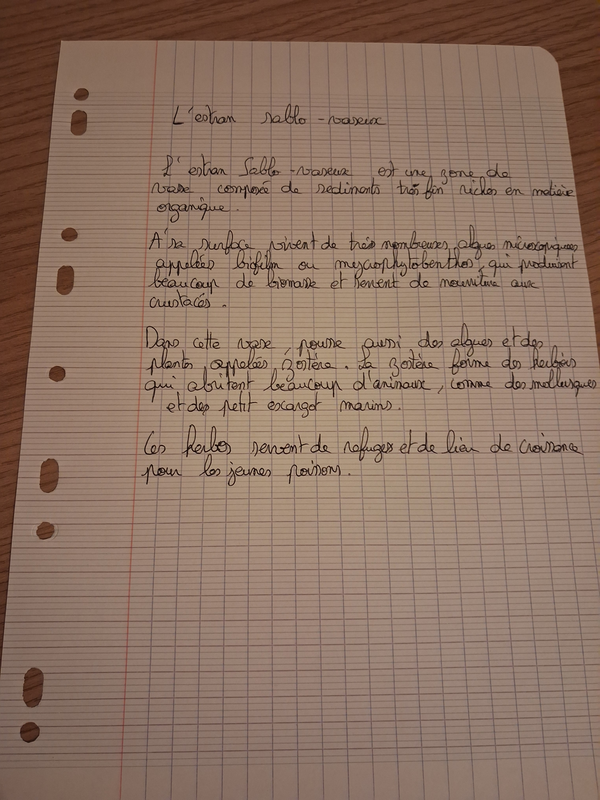 L'estran sablo-vaseux
L'estran Sablo-vaseux est une zone de
vase composée de sediments très fin riches en matière
organique.
A sa surface vivent de très nombreuses algues microscopiques
appelées biofilm ou mycrophytobenthos, qui produisent
beaucoup de biomasse et servent de nourriture aux
crustacés.
Dans cette vase, pousse aussi des algues et des
plantes appelées Zostère. La zostère forme des herbiers
qui abritent beaucoup d'animaux, comme des mollusques
et des petit escargot marins.
Ces herbes servent de refuges et de lieu de croissance
pour les jeunes poissons.